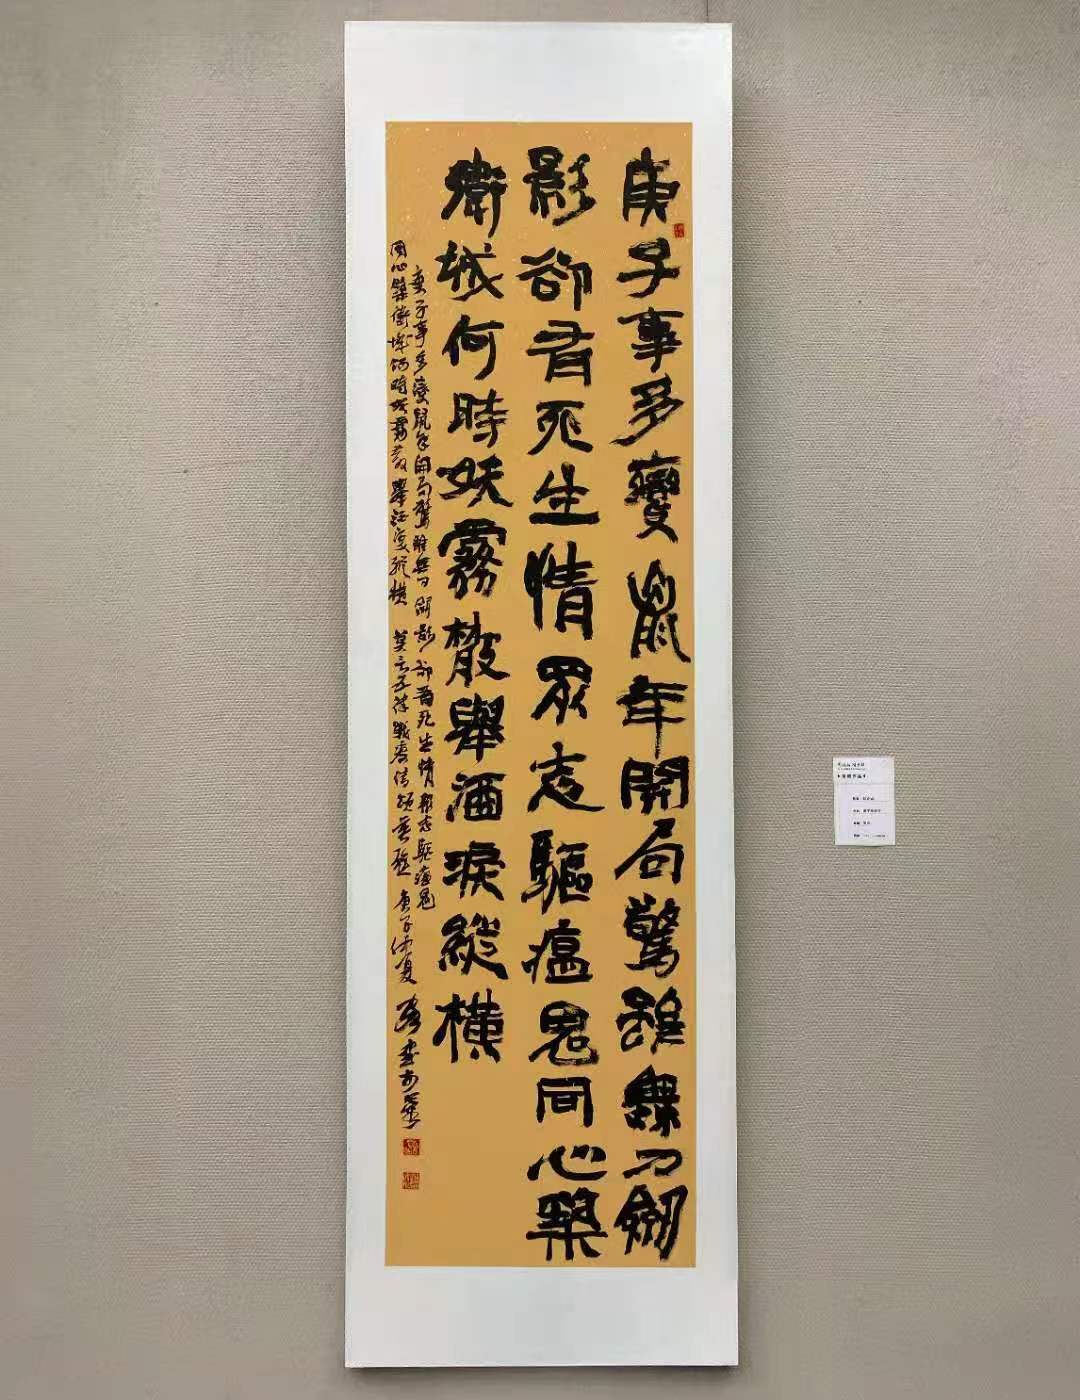 庚子事多變鼠年開局驚雖無刀劍
影卻有死生情眾志驅瘟鬼同心築
衛城何時妖霧散舉酒淚縱橫
庚子事多變鼠年開局驚雖無刀劍影卻有死生情眾志驅瘟鬼
同心築衛城何時妖霧散舉酒淚縱橫 莫言五律戰 庚子仲夏